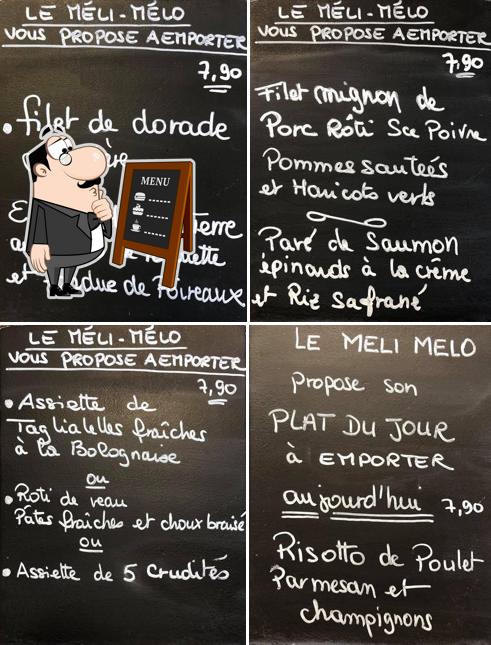 LE MÉLI-MÉLO
VOUS PROPOSE A EMPORTER
7,90
• filet de dorade
MENU
et
de Poireaux
LE MÉLI-MÉLO
VOUS PROPOSE A EMPORTER
7,90
Filet mignon de
Porc Rôti Sce Poivre
Pommes sautées
et Haricots verts
Pavé de Saumon
épinards à la crème
et Riz Safrané
LE MÉLI-MÉLO
VOUS PROPOSE A EMPORTER
7,90
• Assiette de
Tagliatelles fraîches
à la Bolognaise
ou
• Roti de veau
Pates fraîches et choux braisé
ou
• Assiette de 5 crudités
LE MELI MELO
Propose son
PLAT DU JOUR
à EMPORTER
aujourd'hui 7,90
Risotto de Poulet
Parmesan et
champignons